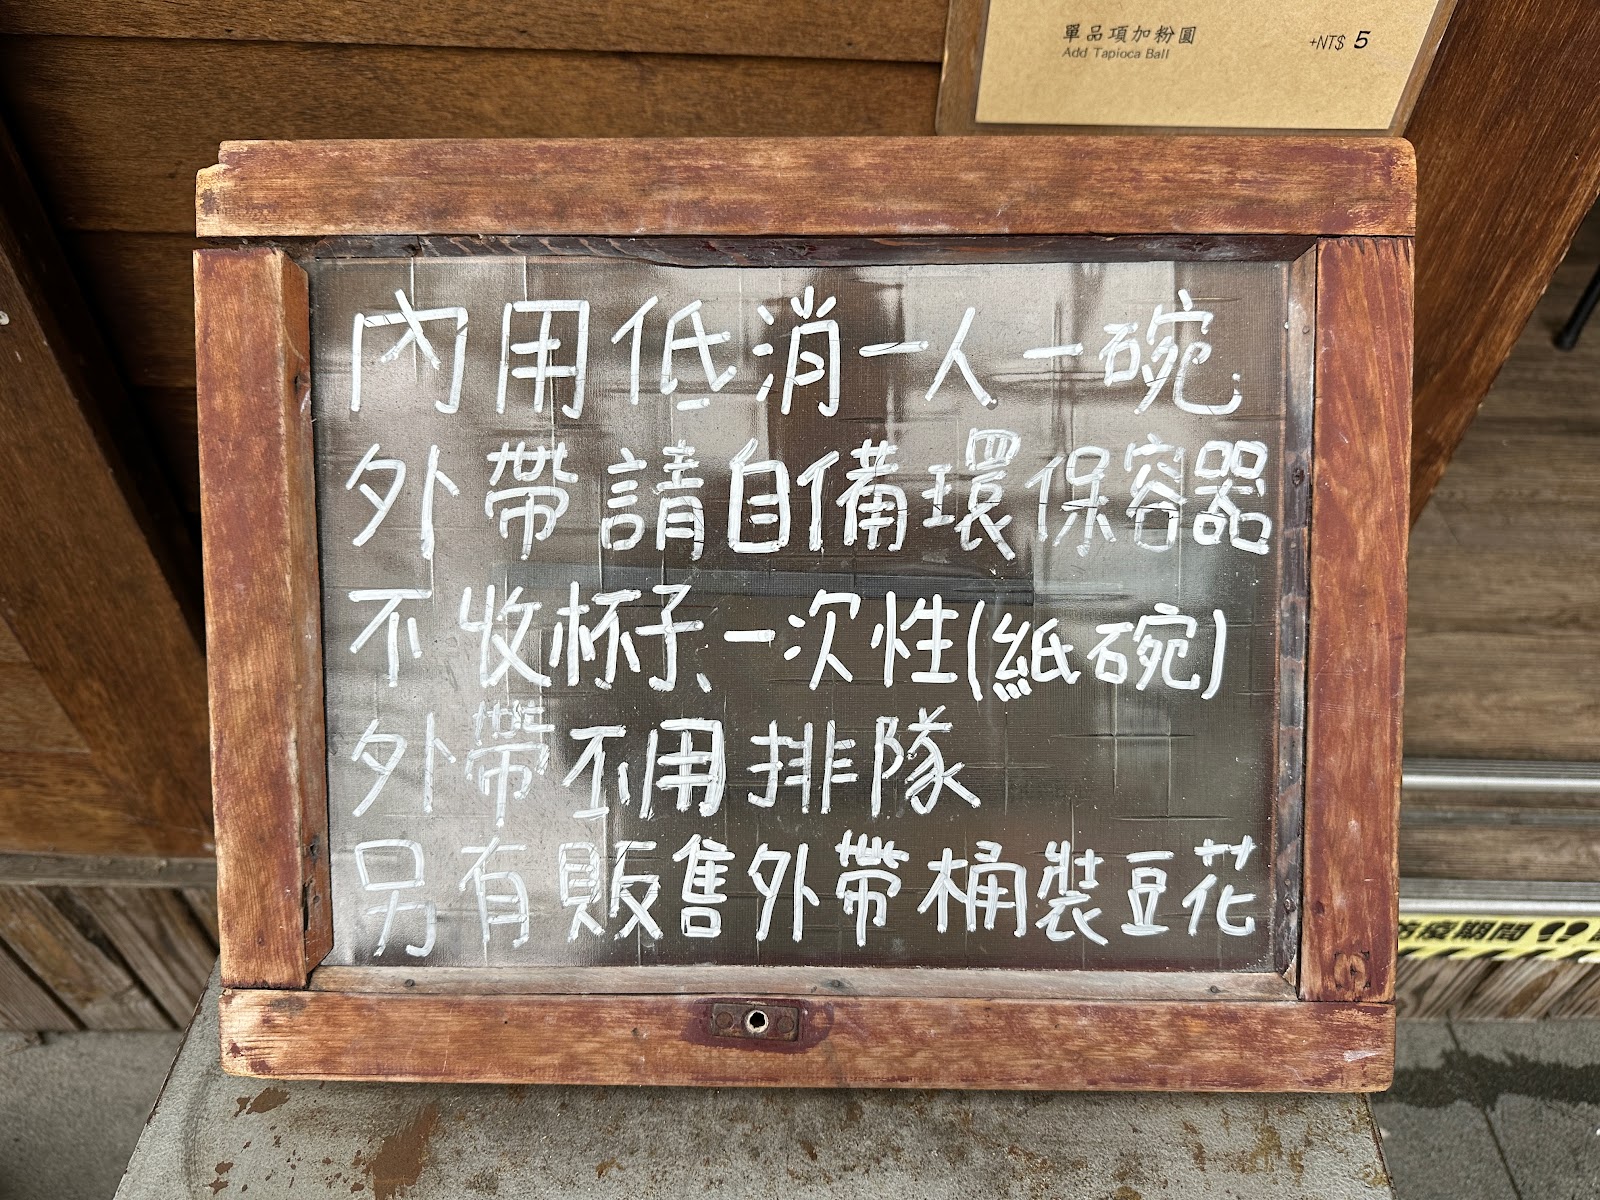 單品項加粉圓 +NT$ 5
Add Tapioca Ball
內用低消一人一碗
外帶請自備環保容器
不收杯子、一次性(紙碗)
外帶不用排隊
另有販售外帶桶裝豆花
防疫期間